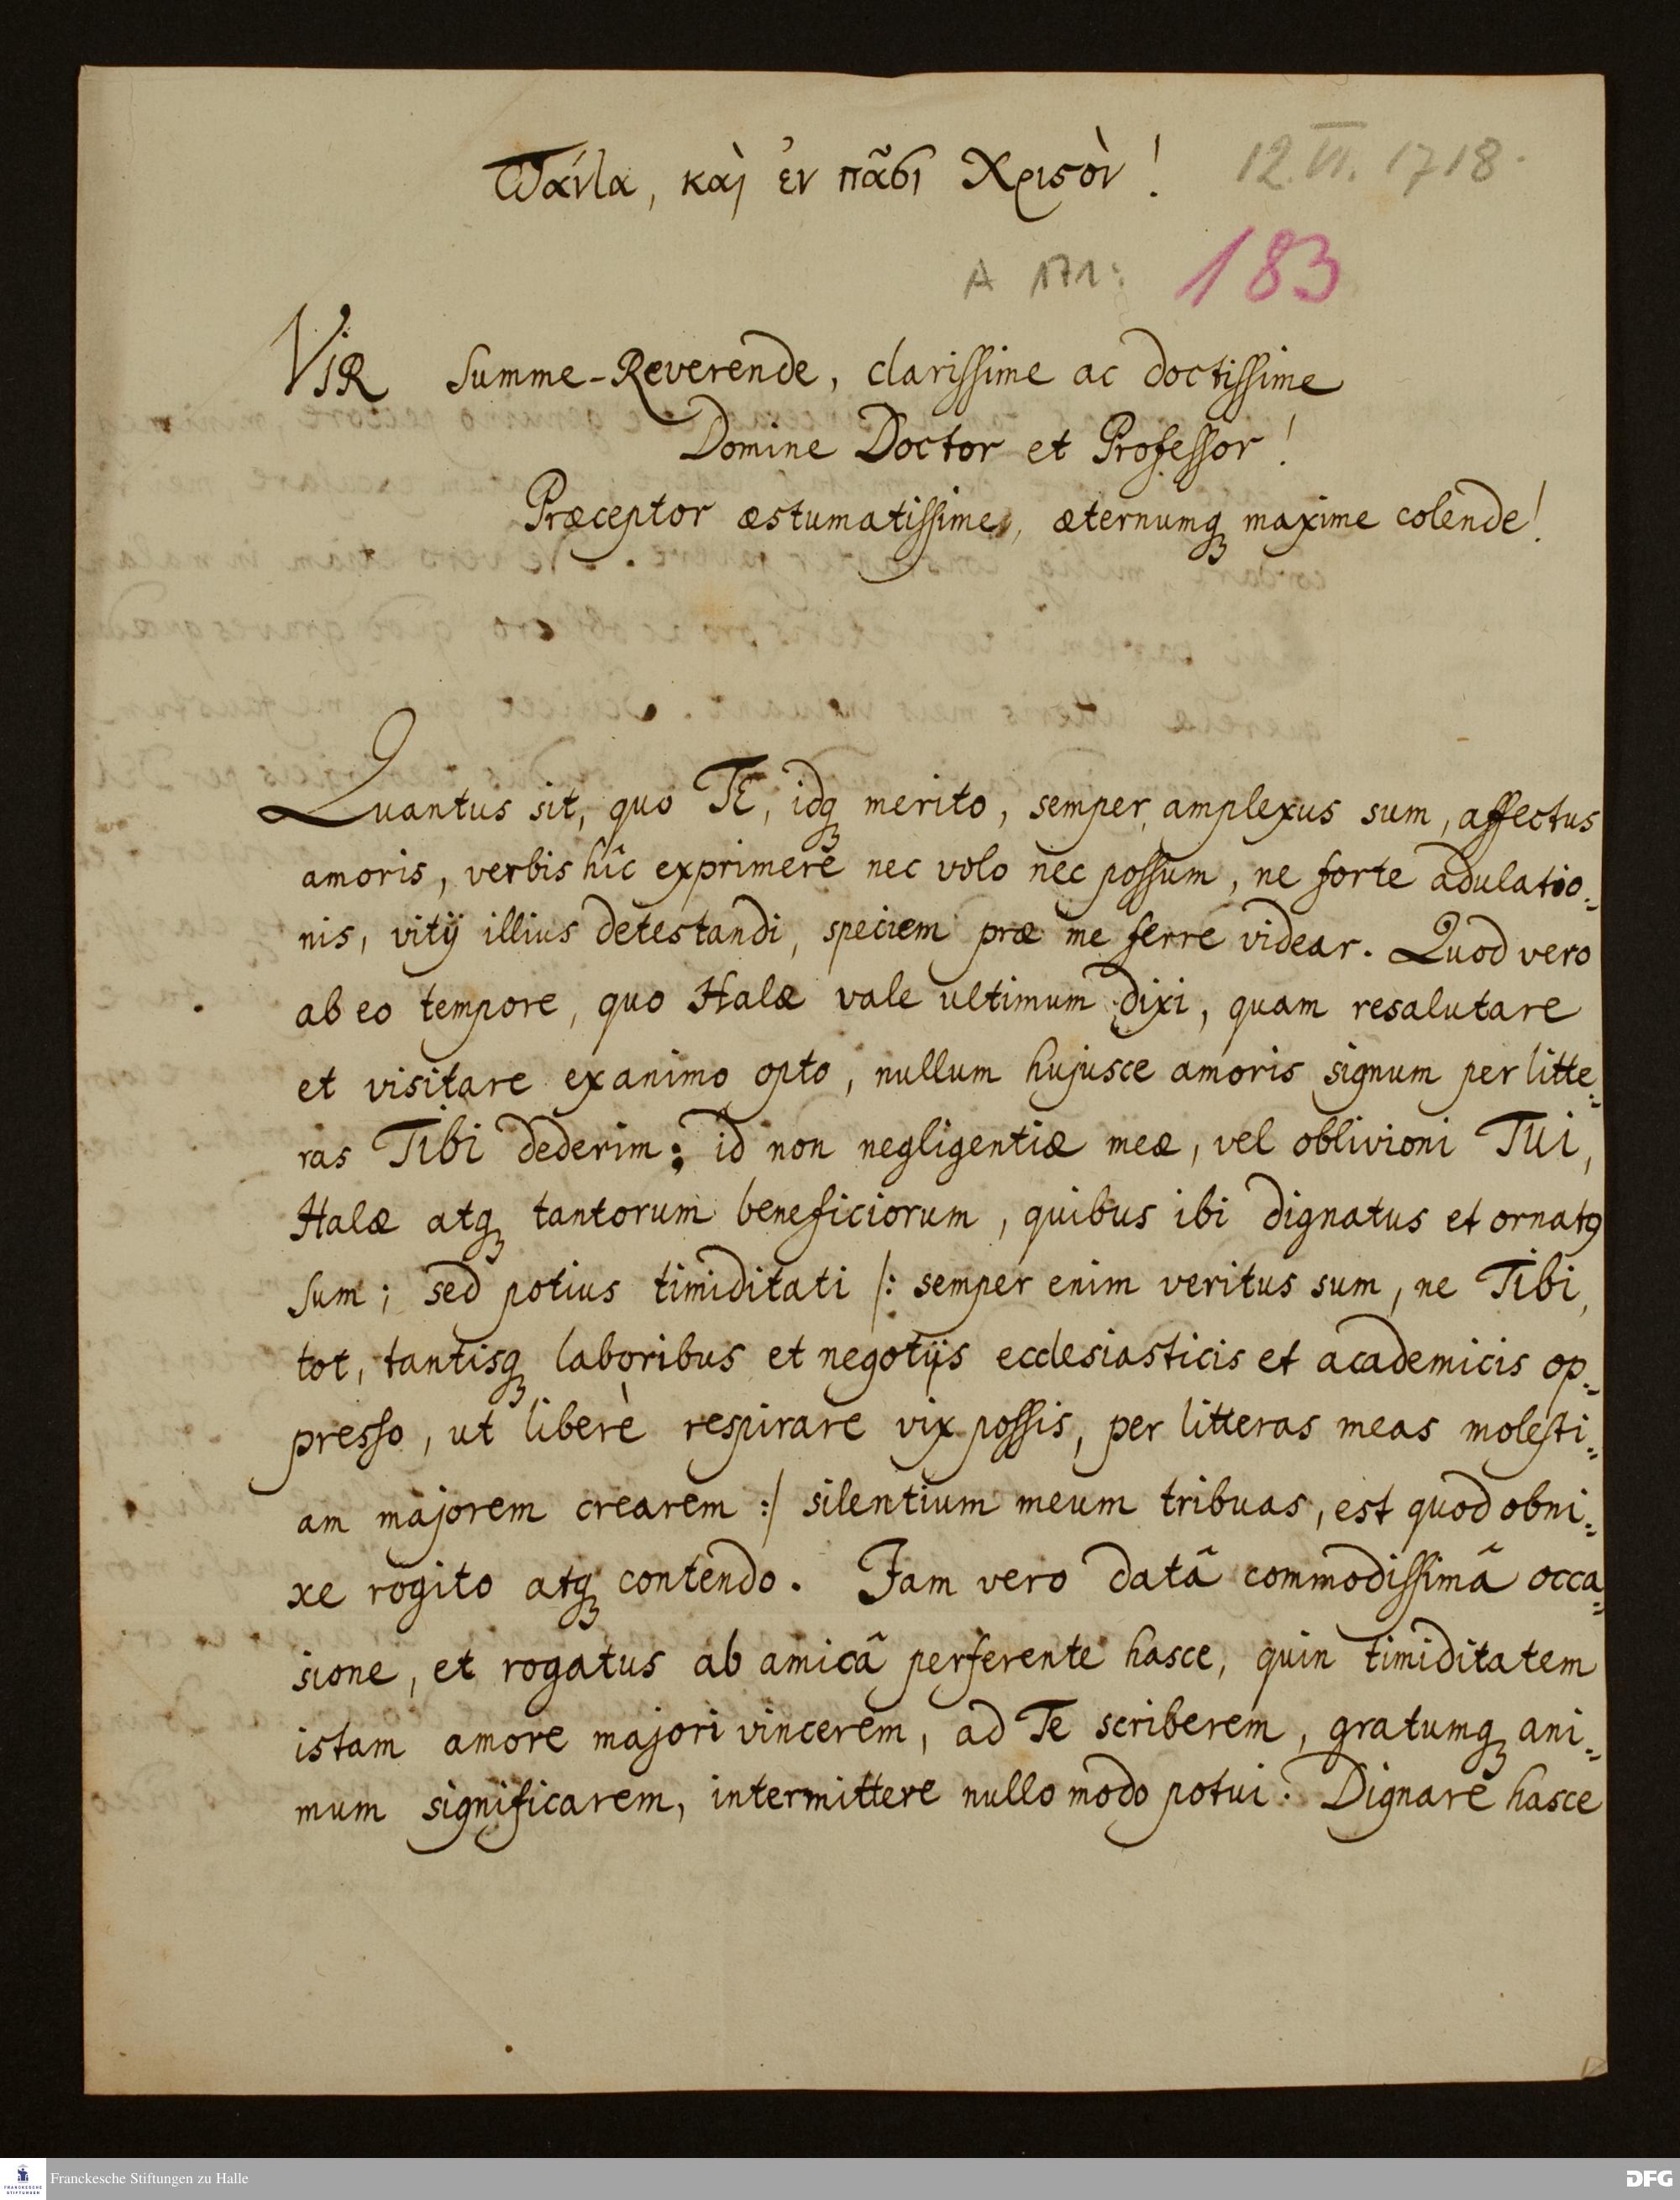 Πάντα, καὶ ἐν πᾶσι Χριϛὸν!
12. VI. 1718.
A 171: 183
ViR Summe-Reverende, clarissime ac doctissime
Domine Doctor et Professor!
Præceptor æstumatissime, æternumq₃ maxime colende!
Quantus sit, quo TE, idq₃ merito, semper amplexus sum, affectus
amoris, verbis hîc exprimere nec volo nec possum, ne forte adulatio-
nis, vitij illius detestandi, speciem præ me ferre videar. Quod vero
ab eo tempore, quo Halæ vale ultimum dixi, quam resalutare
et visitare ex animo opto, nullum hujusce amoris signum per litte-
ras Tibi dederim; id non negligentiæ meæ, vel oblivioni TUi,
Halæ atq₃ tantorum beneficiorum, quibus ibi dignatus et ornatꝰ
sum; sed potius timiditati /: semper enim veritus sum, ne Tibi,
tot, tantisq₃ laboribus et negotijs ecclesiasticis et academicis op-
presso, ut liberè respirare vix possis, per litteras meas molesti-
am majorem crearem :/ silentium meum tribuas, est quod obni-
xe rogito atq₃ contendo. Jam vero datâ commodissimâ occa-
sione, et rogatus ab amicâ perferente hasce, quin timiditatem
istam amore majori vincerem, ad Te scriberem, gratumq₃ ani-
mum significarem, intermittere nullo modo potui. Dignare hasce
Franckesche Stiftungen zu Halle
FRANCKESCHE STIFTUNGEN
DFG